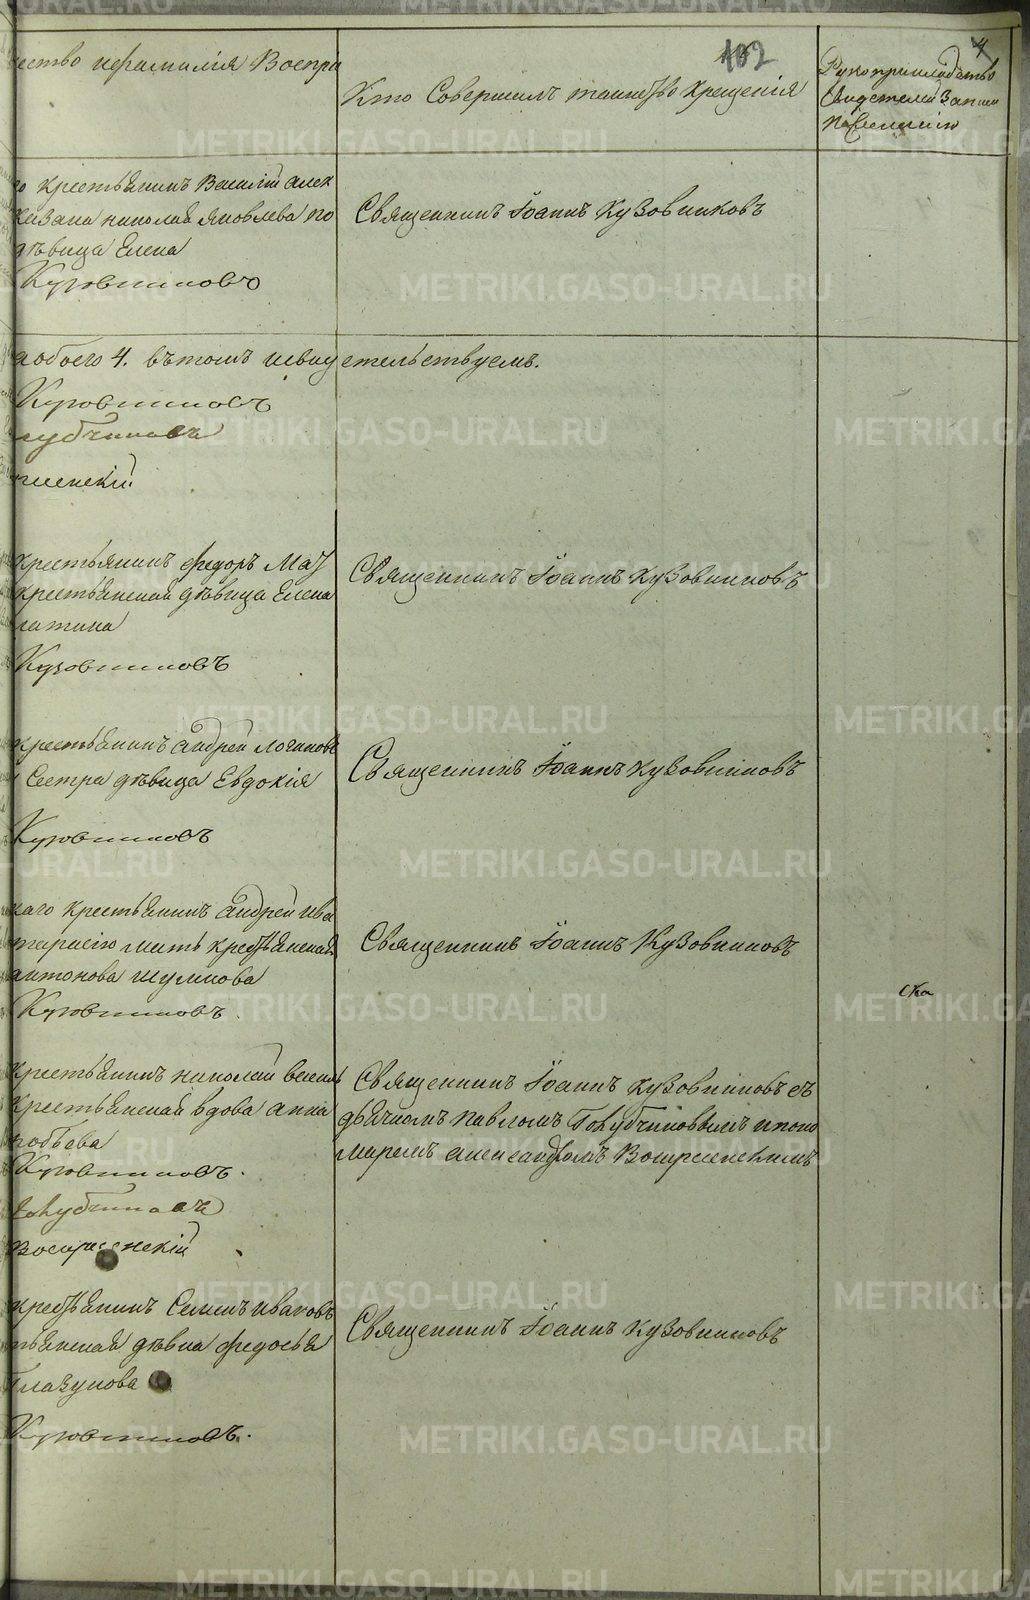 102
4
ество и фамилія Воспри
Кто Совершилъ таинство крещенія
Рукоприкладство
Свидетелей Записи
по желанию
го крестьянинъ Василій Алек
Николай Яковлева
дѣвица Елена
Кузовниковъ
Священникъ Іоаннъ Кузовниковъ
а обоего 4. въ томъ и свидетельствуемъ.
Кузовниковъ
лубчиковъ
сенскій
крестьянинъ Федоръ
крестьянская дѣвица Елена
Кузовниковъ
Священникъ Іоаннъ Кузовниковъ
крестьянинъ Андрей Логиновъ
Сестра дѣвица Евдокія
Кузовниковъ
Священникъ Іоаннъ Кузовниковъ
каго крестьянинъ Андрей Ива
мать крестьянская
антонова шумкова
Кузовниковъ.
Священникъ Іоаннъ Кузовниковъ
крестьянинъ Николай Василь
крестьянская вдова анна
Кузовниковъ.
Голубчиковъ
Воскресенскій
Священникъ Іоаннъ Кузовниковъ съ
дьячкомъ Павломъ Голубчиковымъ и поно
маремъ александромъ Воскресенскимъ
крестьянинъ Семенъ Ивановъ
тьянская дѣвка Федосья
Глазунова
Кузовниковъ.
Священникъ Іоаннъ Кузовниковъ
METRIKI.GASO-URAL.RU